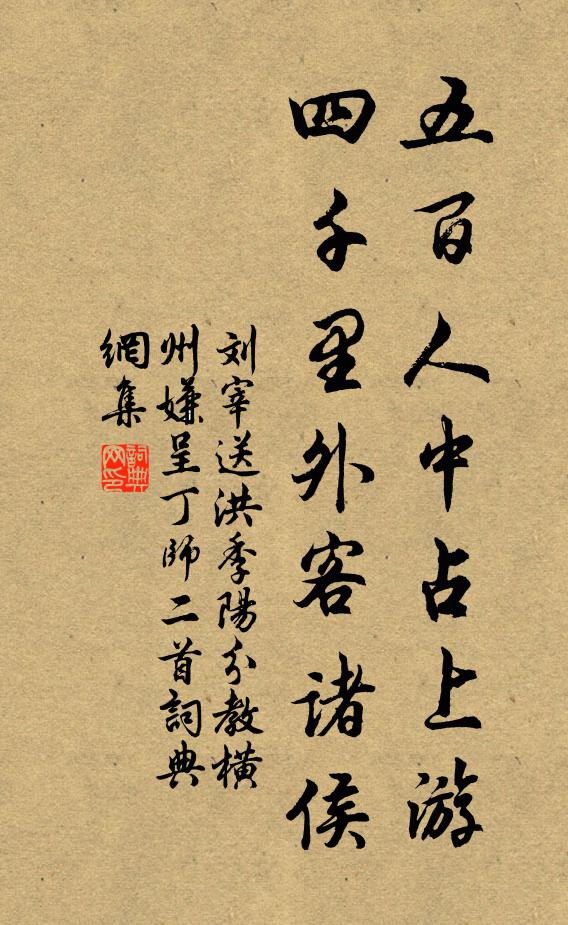 五百人中占上游
四千里外客諸侯
刘宰送洪季陽分教橫
州嫌呈丁師二首詞典
網集
詞典網印